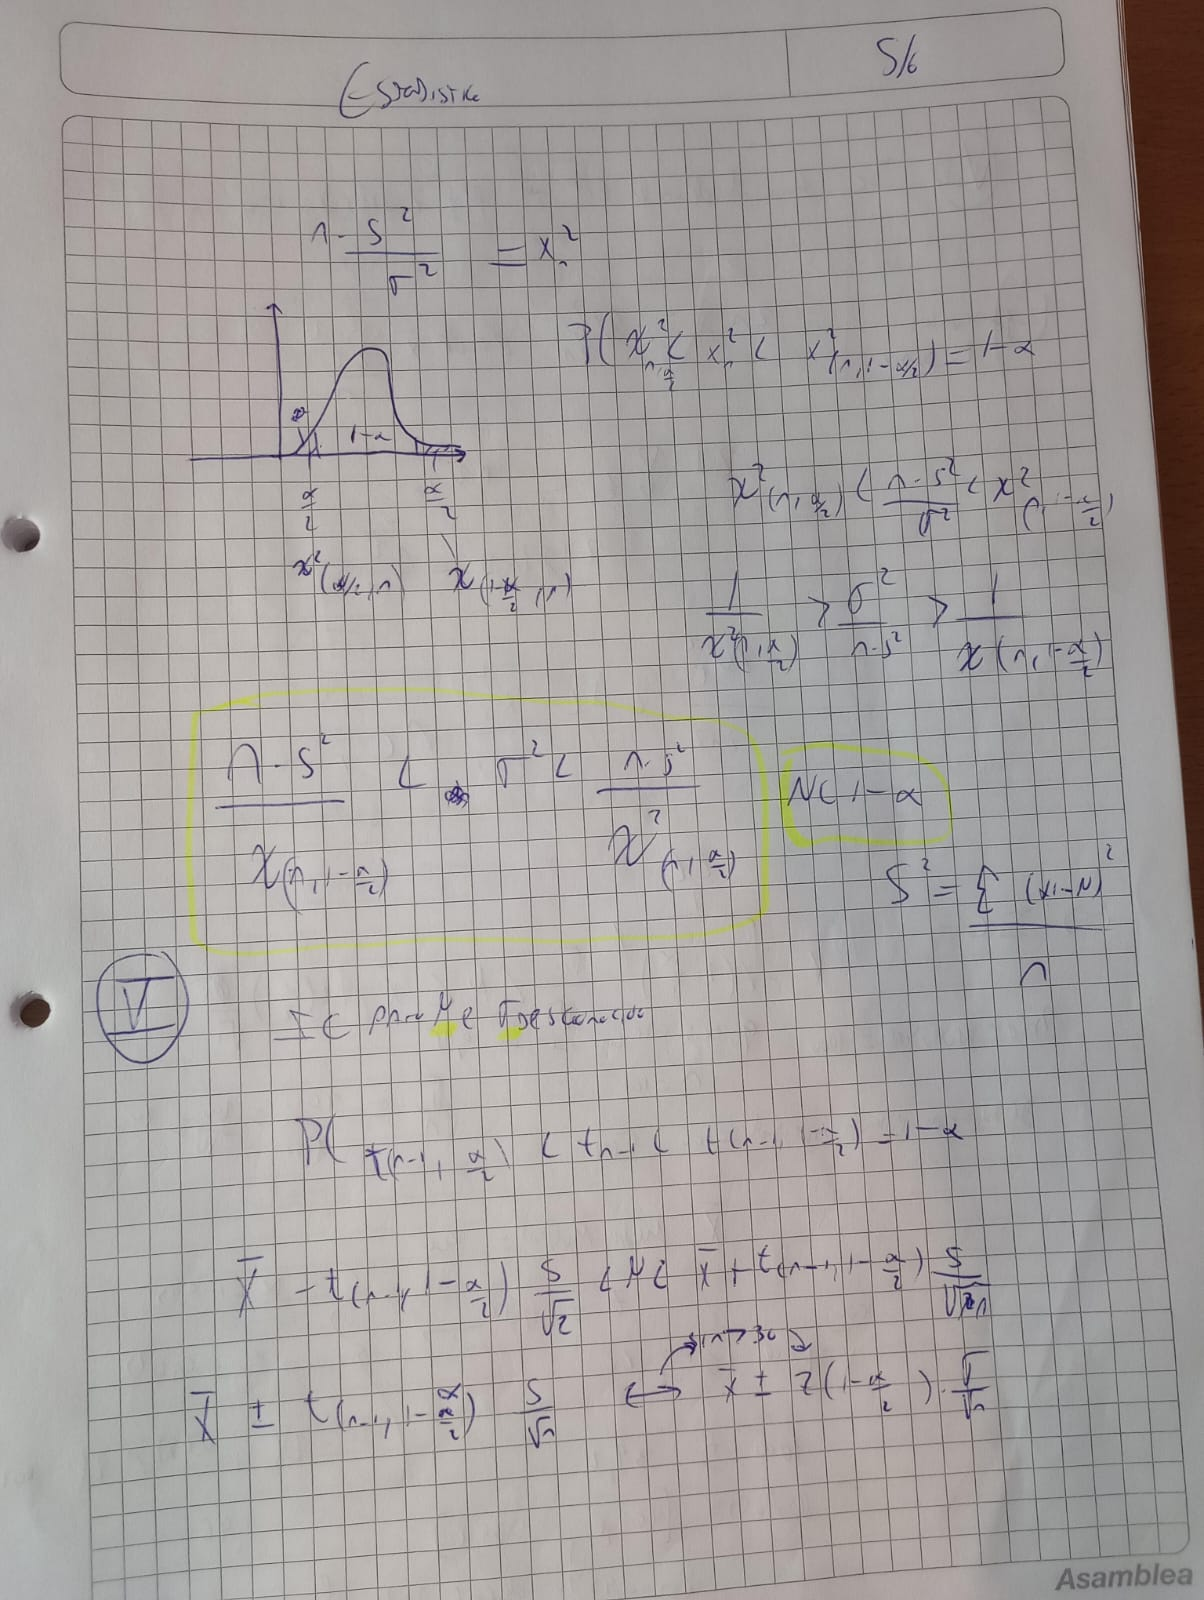 Estadistica
5/6
n · S² / σ² = χ²ₙ
P( χ²ₙ,α/2 < χ²ₙ < χ²(n, 1-α/2) ) = 1-α
1-α
α/2 α/2
χ²(α/2, n) χ(1-α/2, n)
χ²(n, α/2) < n·S² / σ² < χ²(n, 1-α/2)
1 / χ²(n, α/2) > σ² / n·S² > 1 / χ(n, 1-α/2)
n·S² / χ(n, 1-α/2) < σ² < n·S² / χ²(n, α/2)
NC 1-α
S² = Σ (xi-μ)² / n
V
IC para μ σ Desconocida
P( t(n-1, α/2) < tn-1 < t(n-1, 1-α/2) ) = 1-α
X̄ - t(n-1, 1-α/2) S/√2 < μ < X̄ + t(n-1, 1-α/2) S/√n
si n > 30
X̄ ± t(n-1, 1-α/2) S/√n ↔ X̄ ± Z(1-α/2) · σ/√n
Asamblea